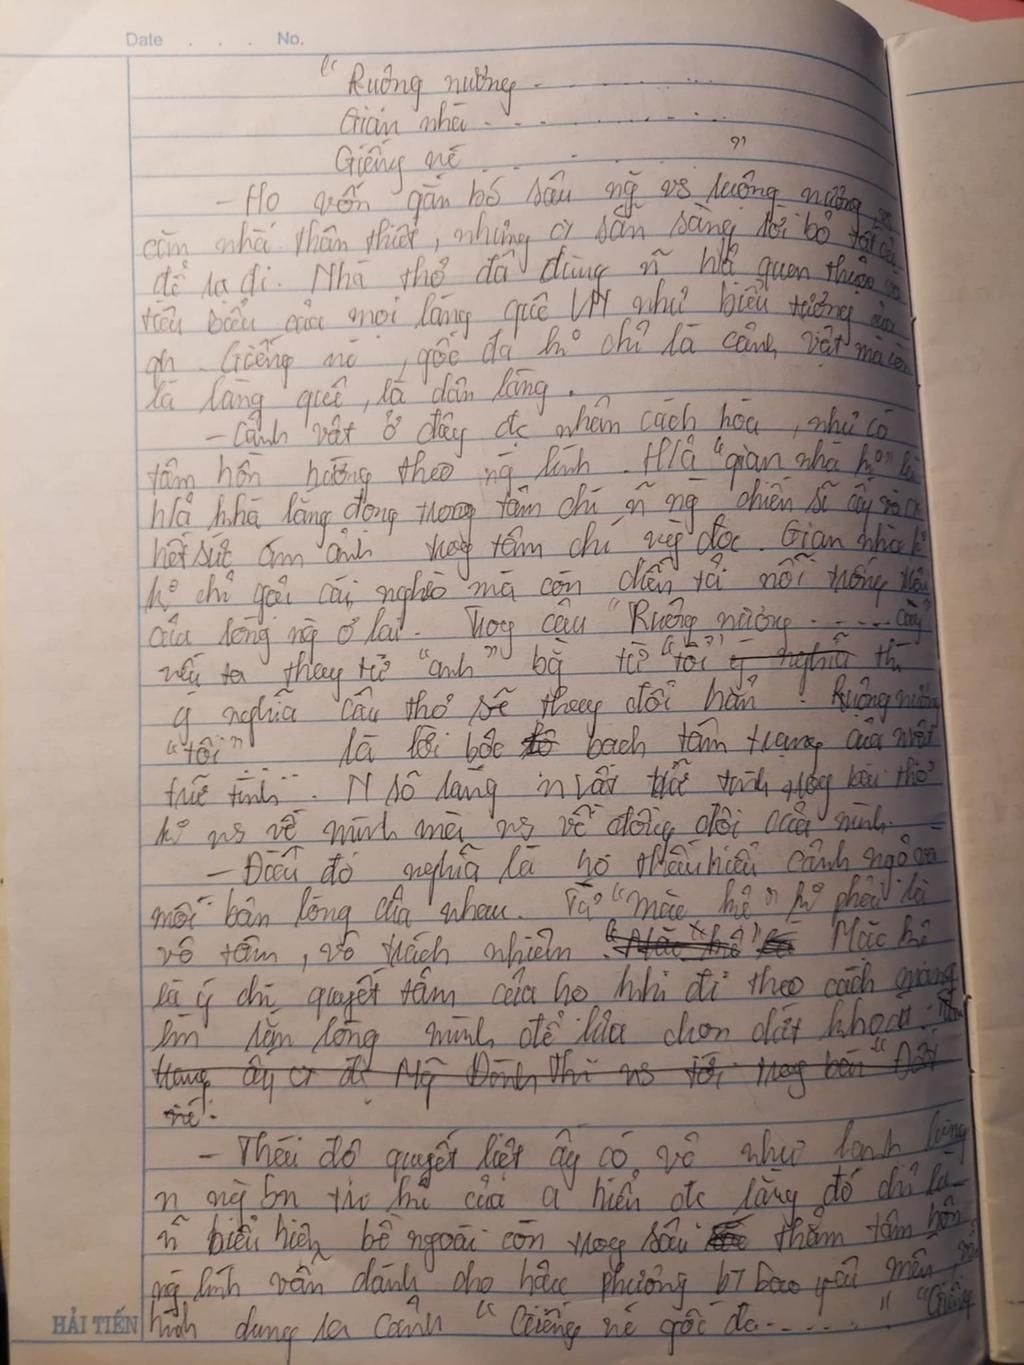 Date . . . No.
“ Ruộng nương - . . . . .
Gian nhà - . . . . . .
Giếng nc . . . . . ”
- Họ vốn gắn bó sâu ng vs ruộng nương,
căn nhà thân thiết, nhưng cx sẵn sàng rời bỏ tất cả
để ra đi. Nhà thơ đã dùng n h/ả quen thuộc
tiêu biểu của mọi làng quê VN như biểu tượng của
gđ. Giếng nc, gốc đa ko chỉ là cảnh vật mà còn
là làng quê, là dân làng.
- Cảnh vật ở đây đc nhân cách hóa, như có
tâm hồn hướng theo ng lính. H/ả “gian nhà ko” là
h/ả khá lắng đọng trong tâm chí n ng chiến sĩ ấy và
hết sức ám ảnh trog tâm chí ng đọc. Gian nhà k
ko chỉ gợi cái nghèo mà còn diễn tả nỗi trống trải
của lòng ng ở lại. Trog câu “Ruộng nương ..... cày”
nếu ta thay từ “anh” bằng từ “tôi” ý nghĩa thì
ý nghĩa câu thơ sẽ thay đổi hẳn. Ruộng nương
“tôi” là lời bộc bạch tâm trạng của nvật
trữ tình. N số lắng nvật trữ tình trog bài thơ
ko ns về mình mà ns về đồng đội của mình.
- Điều đó nghĩa là họ thấu hiểu cảnh ngộ và
mối bận lòng của nhau. Từ “mặc kệ” ko phải là
vô tâm, vô trách nhiệm. “Mặc kệ” Mặc kệ
là ý chí quyết tâm của họ khi đi theo cách mạng
ấy cx đc Ng Đình Thi ns tới trog bài “Đất
nc”.
- Thái độ quyết liệt ấy có vẻ như lạnh lùng
n ng bn tri kỉ của a hiểu đc rằng đó chỉ là
n biểu hiện bề ngoài còn trog sâu thẳm tâm hồn
ng lính vẫn dành cho hậu phương bt bao yêu mến,
hình dung ra cảnh “Giếng nc gốc đa ..... ” “Giếng
HẢI TIẾN